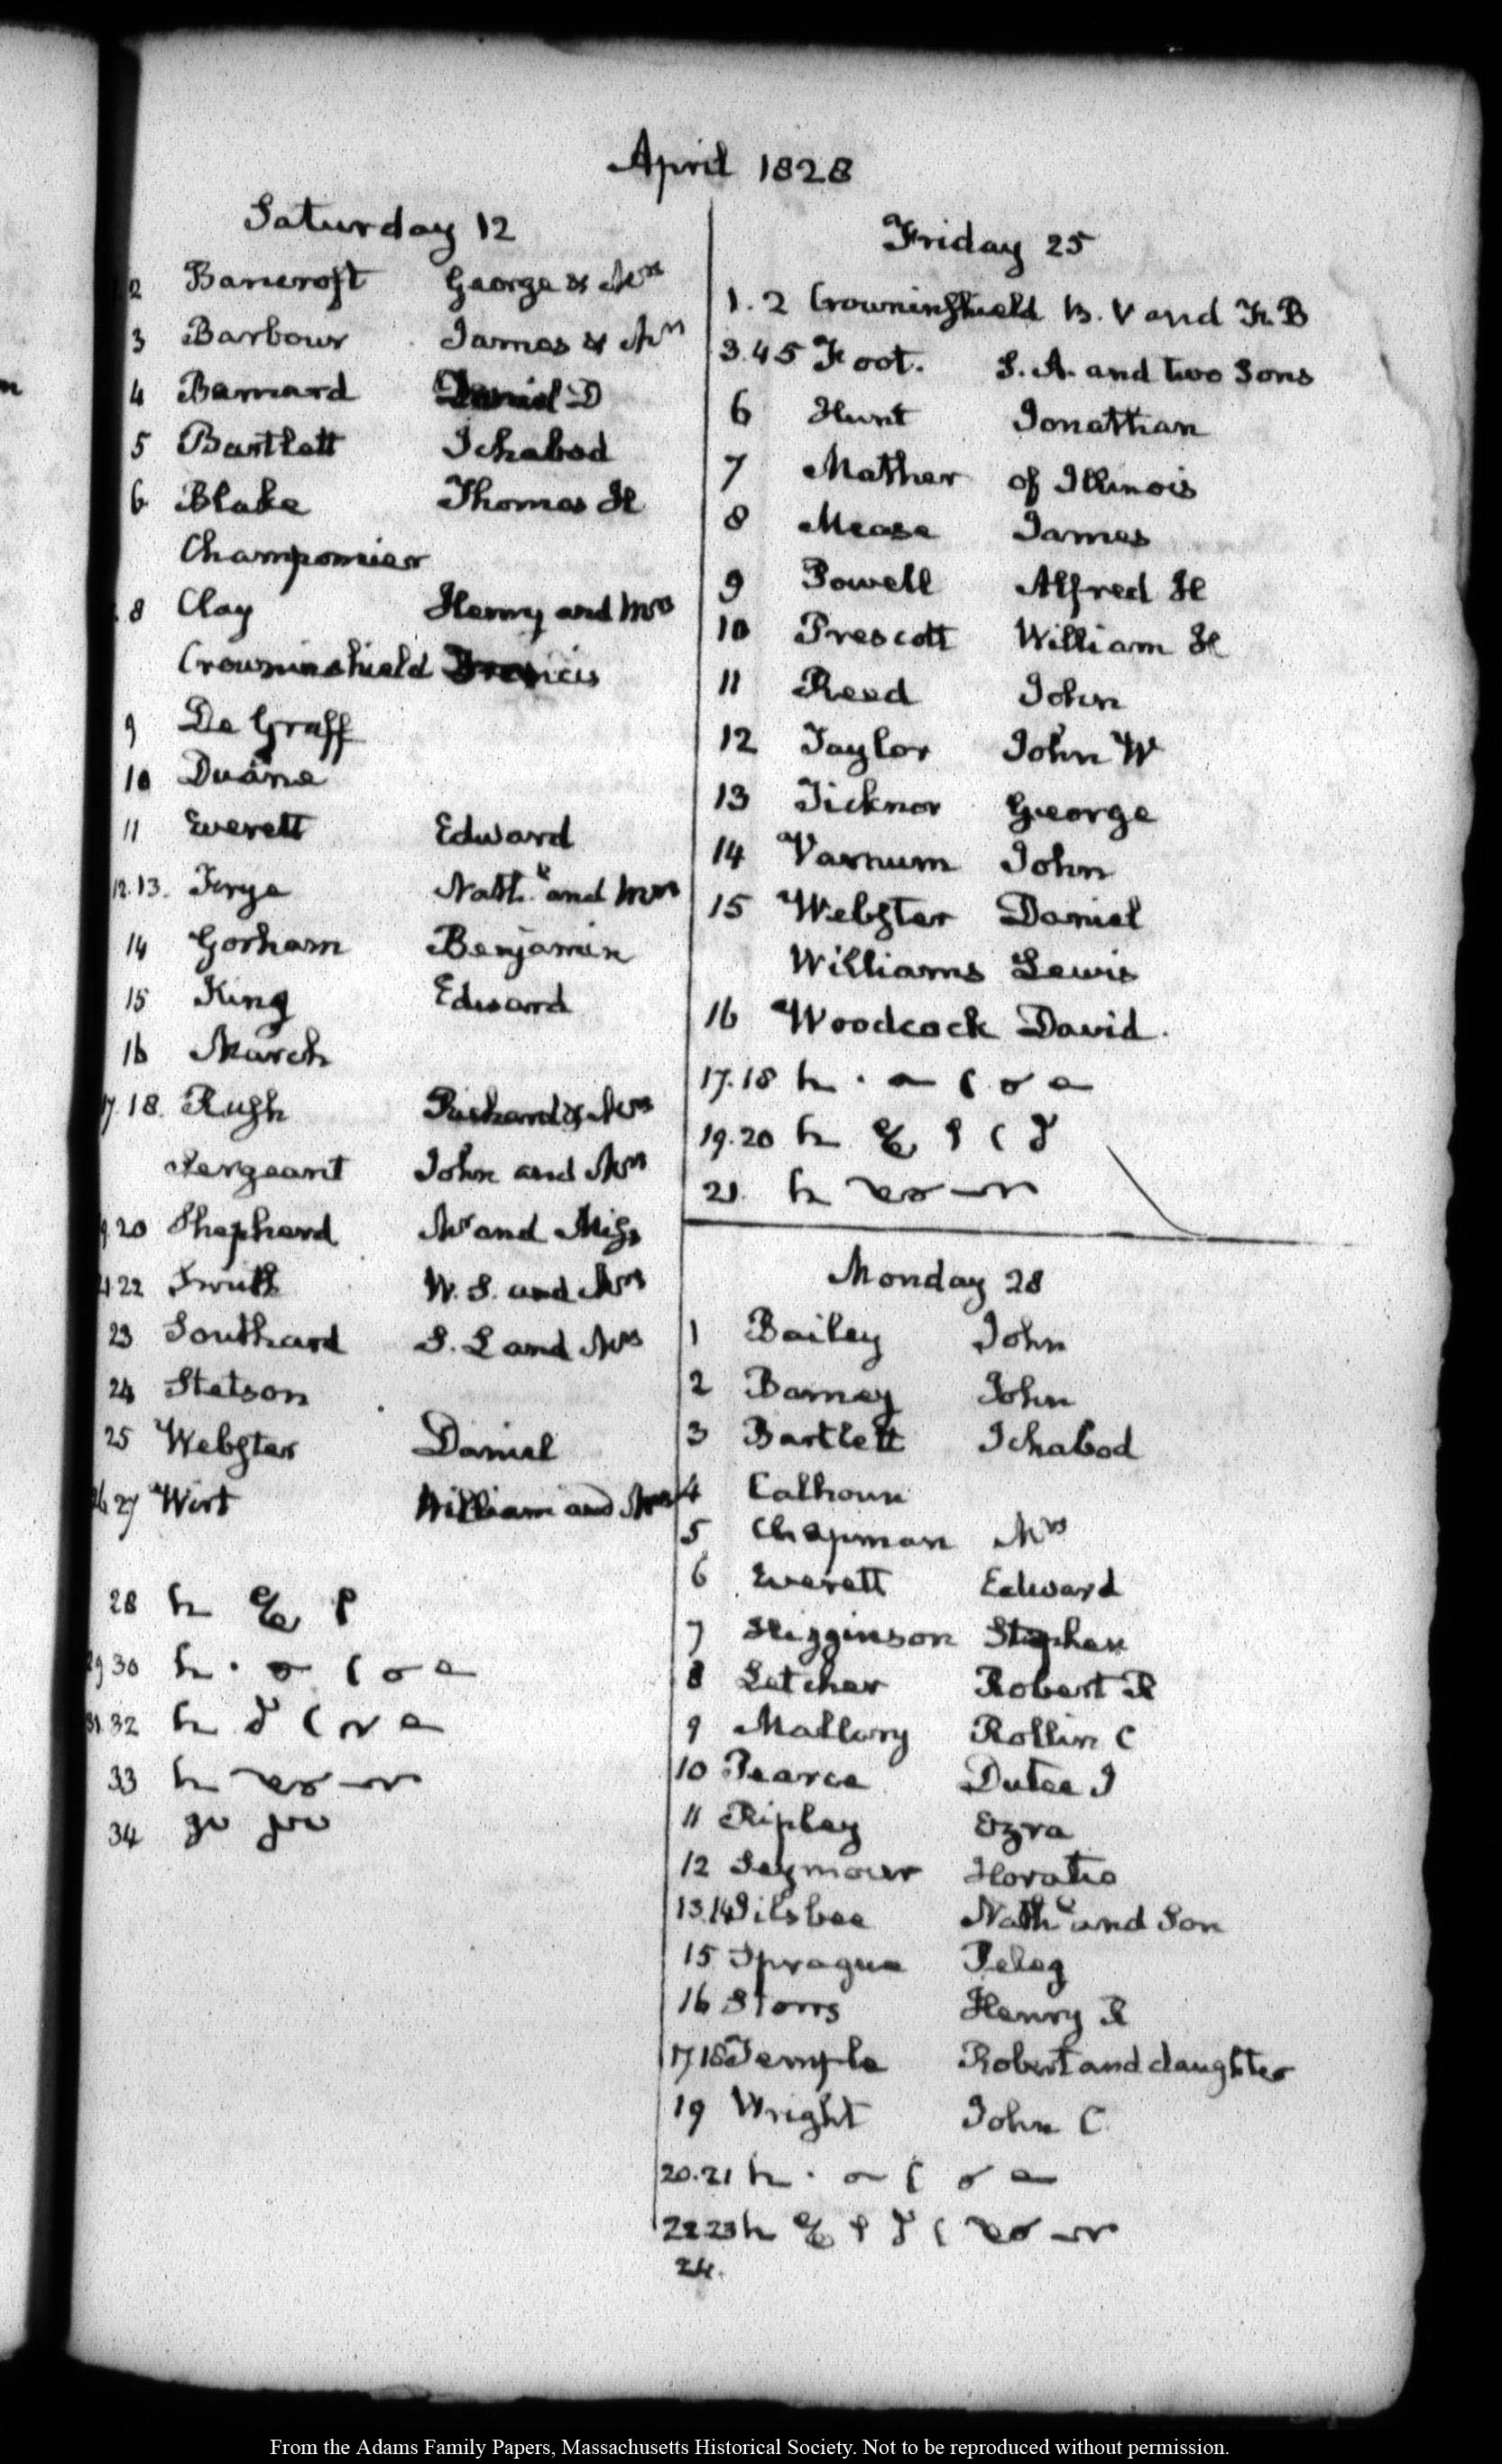 April 1828
Saturday 12
2 Bancroft George & Mrs
3 Barbour James & Mrs
4 Barnard Daniel D
5 Bartlett Ichabod
6 Blake Thomas H
Champomier
8 Clay Henry and Mrs
Crowninshield Francis
9 De Graff
10 Duane
11 Everett Edward
12.13. Frye Nathl. and Mrs
14 Gorham Benjamin
15 King Edward
16 March
17.18. Rush Richard & Mrs
Sergeant John and Mrs
20 Shepherd Mr and Miss
22 Smith W. S. and Mrs
23 Southard S. L and Mrs
24 Stetson
25 Webster Daniel
26 27 Wirt William and Mrs
28
29 30
31.32
33
34
Friday 25
1. 2 Crowninshield B. V and F. B
3.4 5 Foot. S. A. and two Sons
6 Hunt Jonathan
7 Mather of Illinois
8 Mease James
9 Powell Alfred H
10 Prescott William H
11 Reed John
12 Taylor John W
13 Ticknor George
14 Varnum John
15 Webster Daniel
Williams Lewis
16 Woodcock David.
17.18
19.20
21.
Monday 28
1 Bailey John
2 Barney John
3 Bartlett Ichabod
4 Calhoun
5 Chapman Mrs
6 Everett Edward
7 Higginson Stephen
8 Letcher Robert R
9 Mallary Rollin C
10 Pearce Dutee J
11 Ripley Ezra
12 Seymour Horatio
13.14 Silsbee Nathl and Son
15 Sprague Peleg
16 Storrs Henry R
17.18 Temple Robert and daughter
19 Wright John C
20.21
22 23
24.
From the Adams Family Papers, Massachusetts Historical Society. Not to be reproduced without permission.